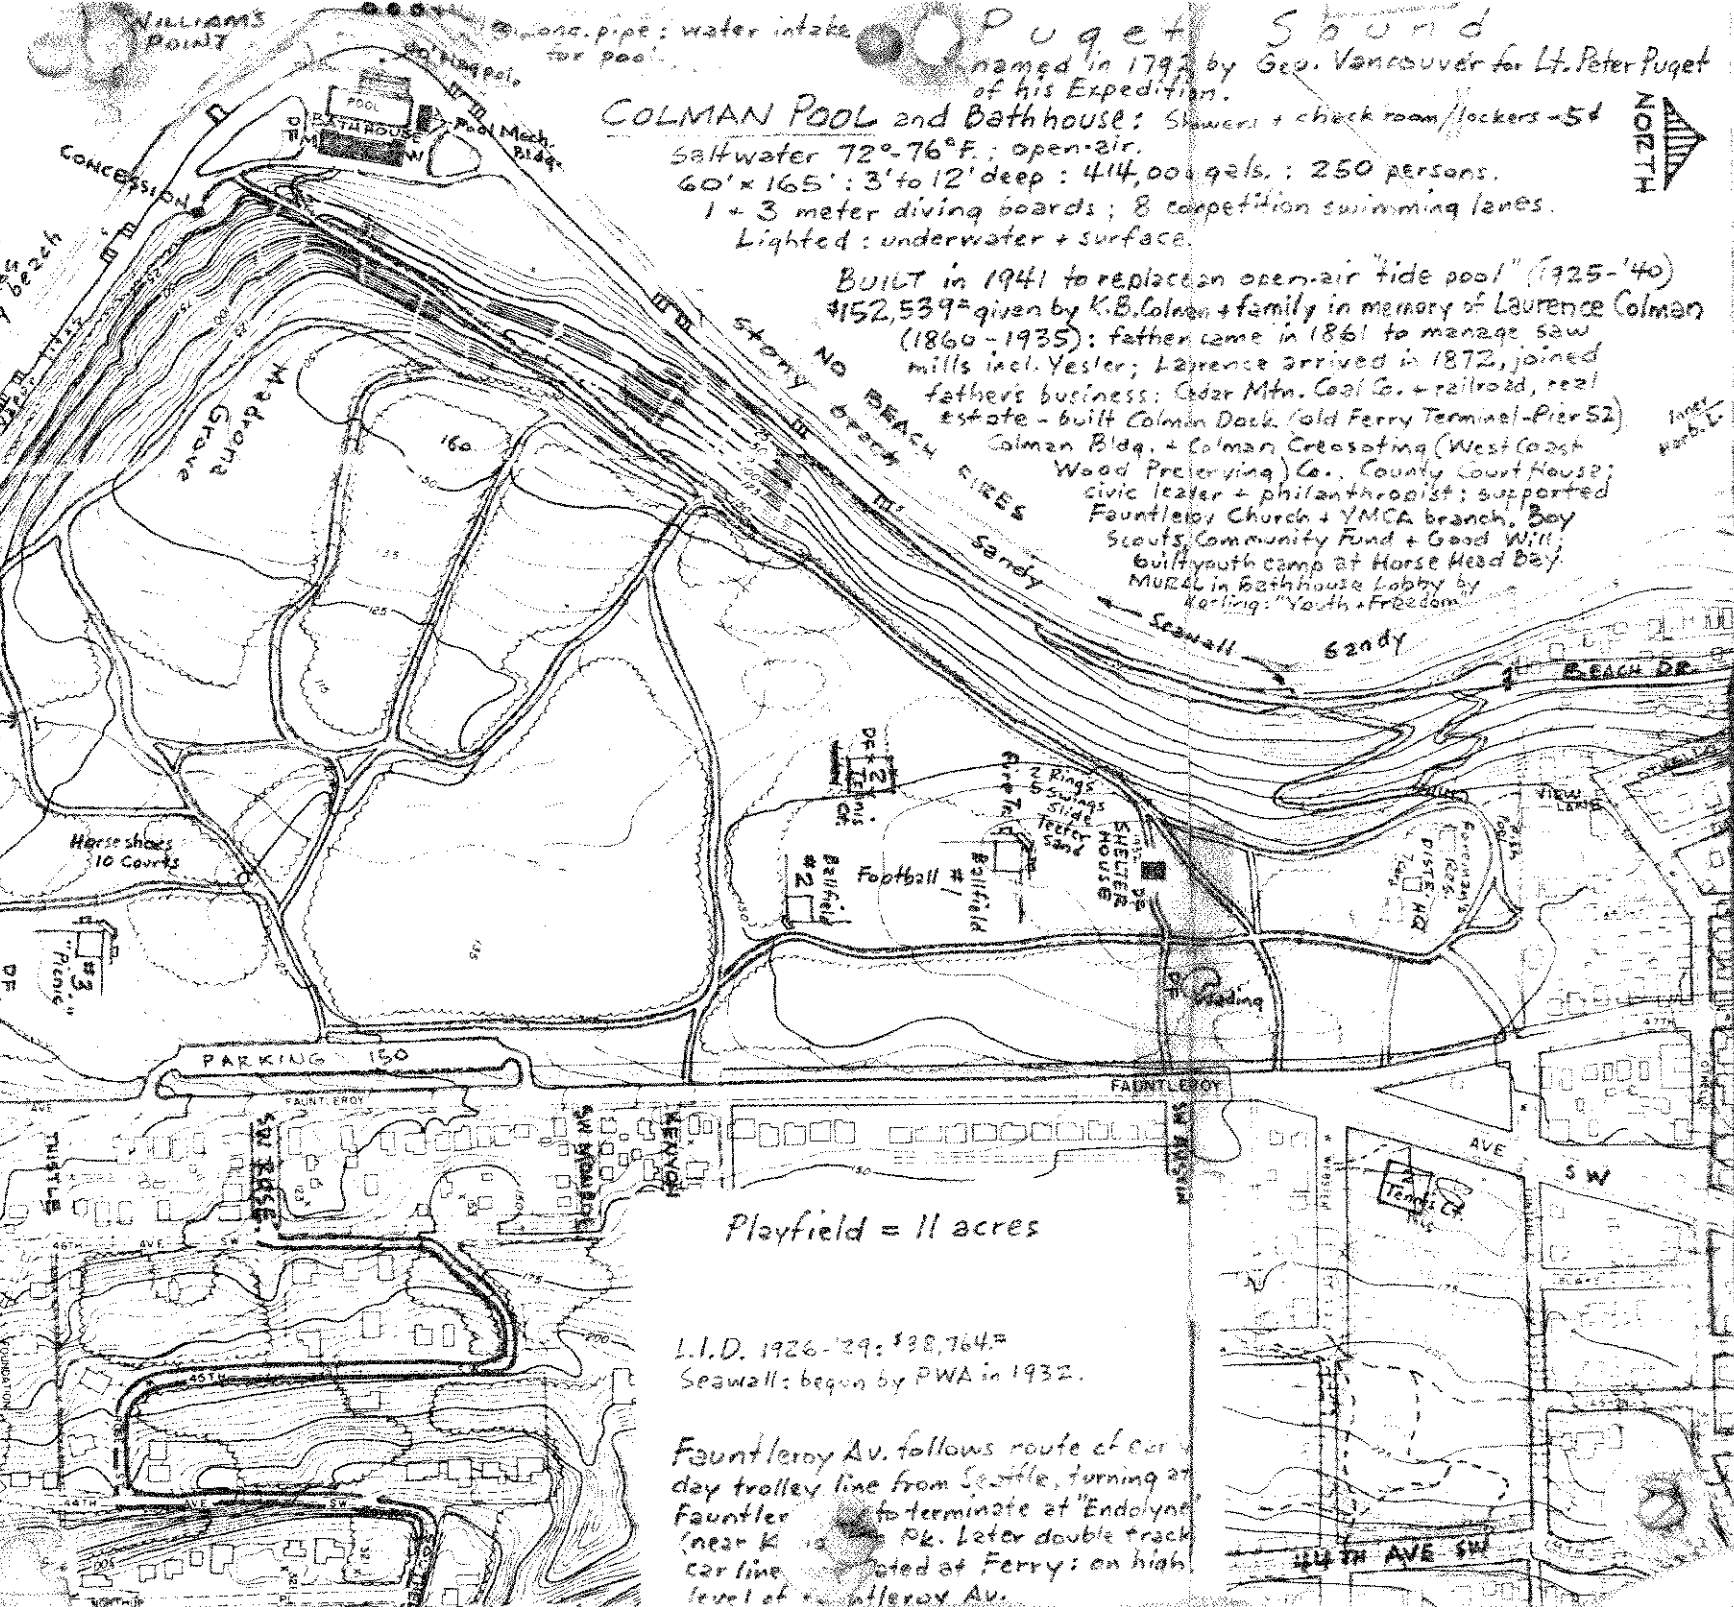 WILLIAMS
POINT
conc. pipe: water intake
for pool
Puget Sound
named in 1792 by Geo. Vancouver for Lt. Peter Puget
of his Expedition.
COLMAN POOL and Bathhouse: Showers + check room/lockers - 5¢
Saltwater 72°-76°F.; open-air.
60' x 165' : 3' to 12' deep : 414,000 gals. : 250 persons.
1 + 3 meter diving boards; 8 competition swimming lanes.
Lighted: underwater + surface.
BUILT in 1941 to replace an open-air "tide pool" (1925-'40)
$152,539= given by K.B. Colman + family in memory of Laurence Colman
(1860-1935): father came in 1861 to manage saw
mills incl. Yesler; Laurence arrived in 1872, joined
father's business: Cedar Mtn. Coal Co. + railroad, real
estate - built Colman Dock (old Ferry Terminal-Pier 52)
Colman Bldg. + Colman Creosoting (West Coast
Wood Preserving) Co., County Court House;
civic leader + philanthropist; supported
Fauntleroy Church + YMCA branch, Boy
Scouts, Community Fund + Good Will;
built youth camp at Horse Head Bay.
MURAL in Bathhouse Lobby by
"Youth + Freedom"
NORTH
POOL
BATHHOUSE
M
W
Pool Mech.
Bldg.
CONCESSION
beach
Madrona
Grove
Stony
beach
NO BEACH FIRES
Sandy
Seawall
Sandy
BEACH DR.
160
150
125
125
115
VIEW
LANE
Horseshoes
10 Courts
#3
"Picnic"
DF
DF
2
Tennis
Cts.
Ballfield
#2
Football
Ballfield
#1
2 Rings
5 Swings
Slide
Teeter
Sand
SHELTER
HOUSE
DF
Wading
Foreman's
Res.
DIST. HQ
PARKING 150
AVE
FAUNTLEROY
FAUNTLEROY
47TH
AVE
SW
THISTLE
SW ROSE
SW MONROE
KENYON
SW AUSTIN
WEBSTER
2
Tennis Ct.
46TH AVE SW
45TH
44TH AVE SW
175
200
175
150
Playfield = 11 acres
L.I.D. 1926-'29: $38,764.=
Seawall: begun by PWA in 1932.
Fauntleroy Av. follows route of
day trolley line from Seattle, turning at
Fauntler to terminate at "Endolyne"
(near Pk. Later double track
car line ated at Ferry: on high
level of ntleroy Av.
44TH AVE SW